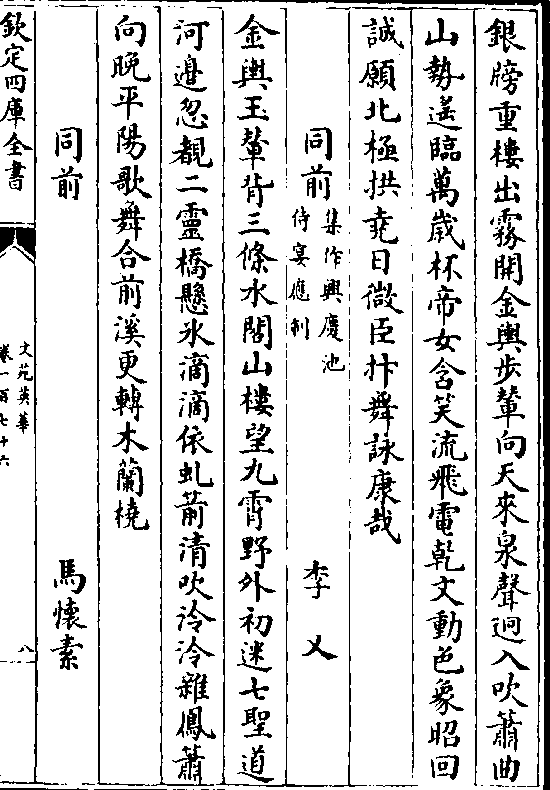 銀牓重樓出霧開金輿步輦向天來泉聲迥入吹簫曲
山勢遙臨萬歲杯帝女含笑流飛電乾文動色象昭回
誠願北極拱堯日微臣抃舞詠康哉
同前 集作興慶池侍宴應制 李乂
金輿玉輦背三條水閣山樓望九霄野外初迷七聖道
河邊忽覩二靈橋懸氷滴滴依虬箭清吹泠泠雜鳳簫
向晚平陽歌舞合前溪更轉木蘭橈
同前 馬懷素
欽定四庫全書 文苑英華 卷一百七十六 八